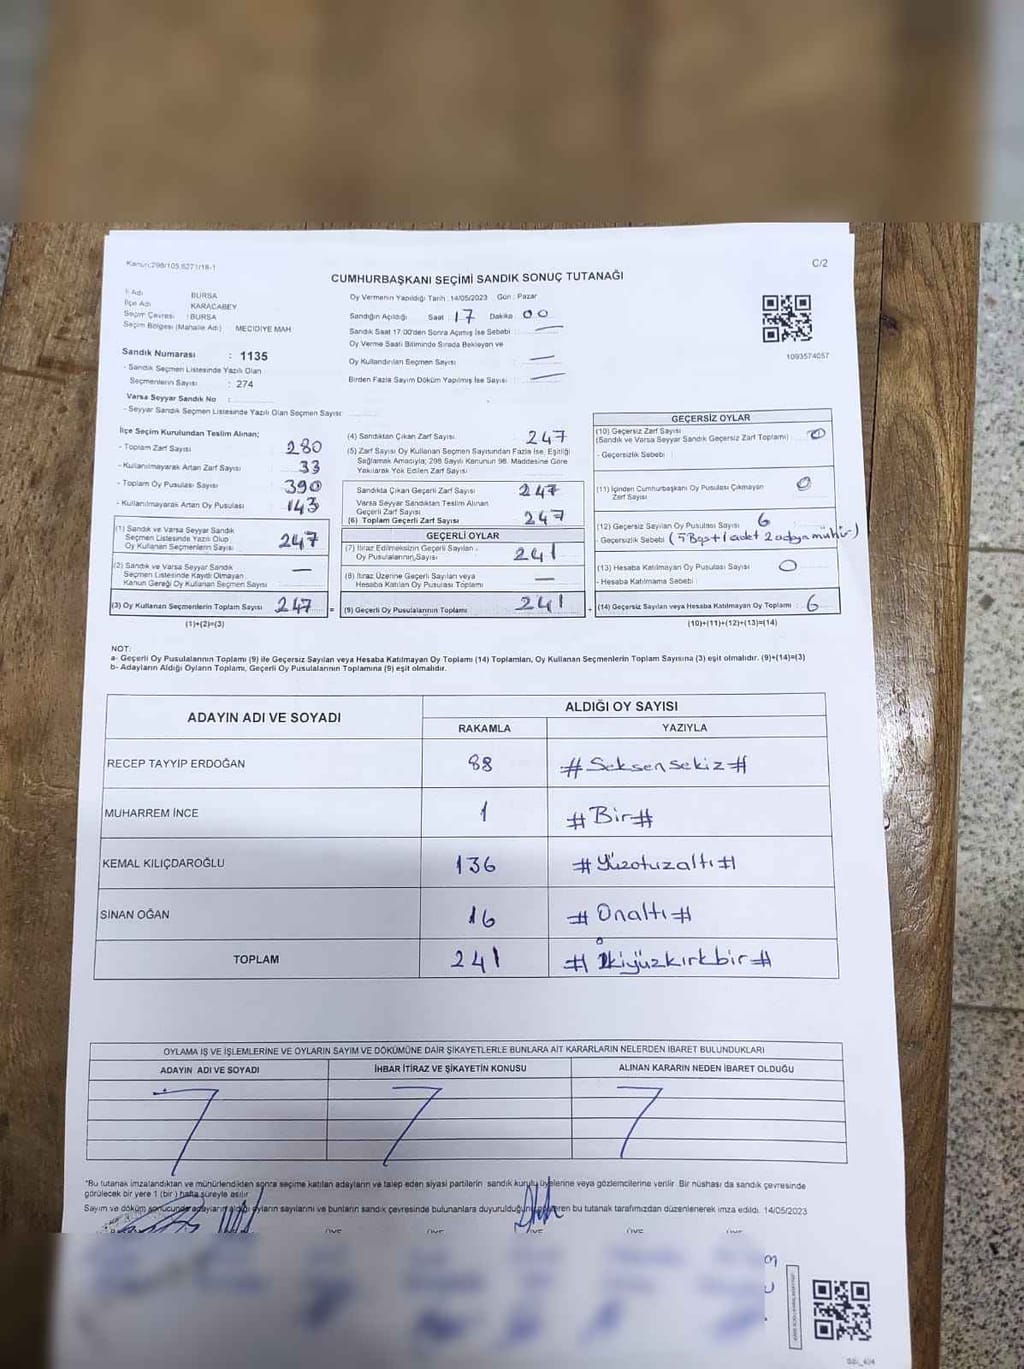 Kanun:298/105 6271/18-1
C/2
CUMHURBAŞKANI SEÇİMİ SANDIK SONUÇ TUTANAĞI
İl Adı BURSA
İlçe Adı KARACABEY
Seçim Çevresi : BURSA
Seçim Bölgesi (Mahalle Adı) : MECİDİYE MAH
Sandık Numarası : 1135
- Sandık Seçmen Listesinde Yazılı Olan
Seçmenlerin Sayısı : 274
Varsa Seyyar Sandık No :
- Seyyar Sandık Seçmen Listesinde Yazılı Olan Seçmen Sayısı:
Oy Vermenin Yapıldığı Tarih :14/05/2023 Gün : Pazar
Sandığın Açıldığı Saat : 17 Dakika : 00
Sandık Saat 17:00'den Sonra Açılmış İse Sebebi : —
Oy Verme Saati Bitiminde Sırada Bekleyen ve
Oy Kullandırılan Seçmen Sayısı : —
Birden Fazla Sayım Döküm Yapılmış İse Sayısı : —
1093574057
İlçe Seçim Kurulundan Teslim Alınan;
- Toplam Zarf Sayısı 280
- Kullanılmayarak Artan Zarf Sayısı 33
- Toplam Oy Pusulası Sayısı 390
- Kullanılmayarak Artan Oy Pusulası 143
(1) Sandık ve Varsa Seyyar Sandık
Seçmen Listesinde Yazılı Olup
Oy Kullanan Seçmenlerin Sayısı 247
(2) Sandık ve Varsa Seyyar Sandık
Seçmen Listesinde Kayıtlı Olmayan
Kanun Gereği Oy Kullanan Seçmen Sayısı —
(3) Oy Kullanan Seçmenlerin Toplam Sayısı 247 =
(1)+(2)=(3)
(4) Sandıktan Çıkan Zarf Sayısı 247
(5) Zarf Sayısı Oy Kullanan Seçmen Sayısından Fazla İse, Eşitliği
Sağlamak Amacıyla; 298 Sayılı Kanunun 98. Maddesine Göre
Yakılarak Yok Edilen Zarf Sayısı
Sandıkta Çıkan Geçerli Zarf Sayısı 247
Varsa Seyyar Sandıktan Teslim Alınan
Geçerli Zarf Sayısı
(6) Toplam Geçerli Zarf Sayısı 247
GEÇERLİ OYLAR
(7) İtiraz Edilmeksizin Geçerli Sayılan
Oy Pusulalarının Sayısı 241
(8) İtiraz Üzerine Geçerli Sayılan veya
Hesaba Katılan Oy Pusulası Toplamı —
(9) Geçerli Oy Pusulalarının Toplamı 241 +
GEÇERSİZ OYLAR
(10) Geçersiz Zarf Sayısı
(Sandık ve Varsa Seyyar Sandık Geçersiz Zarf Toplamı) : 0
- Geçersizlik Sebebi :
(11) İçinden Cumhurbaşkanı Oy Pusulası Çıkmayan
Zarf Sayısı 0
(12) Geçersiz Sayılan Oy Pusulası Sayısı 6
- Geçersizlik Sebebi (5 Boş + 1 adet 2 adaya mühür)
(13) Hesaba Katılmayan Oy Pusulası Sayısı 0
- Hesaba Katılmama Sebebi :
(14) Geçersiz Sayılan veya Hesaba Katılmayan Oy Toplamı : 6
(10)+(11)+(12)+(13)=(14)
NOT:
a- Geçerli Oy Pusulalarının Toplamı (9) ile Geçersiz Sayılan veya Hesaba Katılmayan Oy Toplamı (14) Toplamları, Oy Kullanan Seçmenlerin Toplam Sayısına (3) eşit olmalıdır. (9)+(14)=(3)
b- Adayların Aldığı Oyların Toplamı, Geçerli Oy Pusulalarının Toplamına (9) eşit olmalıdır.
ADAYIN ADI VE SOYADI ALDIĞI OY SAYISI
RAKAMLA YAZIYLA
RECEP TAYYİP ERDOĞAN 88 #Seksensekiz#
MUHARREM İNCE 1 #Bir#
KEMAL KILIÇDAROĞLU 136 #Yüzotuzaltı#
SİNAN OĞAN 16 #Onaltı#
TOPLAM 241 #İkiyüzkırkbir#
OYLAMA İŞ VE İŞLEMLERİNE VE OYLARIN SAYIM VE DÖKÜMÜNE DAİR ŞİKAYETLERLE BUNLARA AİT KARARLARIN NELERDEN İBARET BULUNDUKLARI
ADAYIN ADI VE SOYADI İHBAR İTİRAZ VE ŞİKAYETİN KONUSU ALINAN KARARIN NEDEN İBARET OLDUĞU
"Bu tutanak imzalandıktan ve mühürlendikten sonra seçime katılan adayların ve talep eden siyasi partilerin sandık kurulu üyelerine veya gözlemcilerine verilir. Bir nüshası da sandık çevresinde
görülecek bir yere 1 (bir) hafta süreyle asılır.
Sayım ve döküm sonucunda adayların aldığı oyların sayılarını ve bunların sandık çevresinde bulunanlara duyurulduğunu gösteren bu tutanak tarafımızdan düzenlenerek imza edildi. 14/05/2023